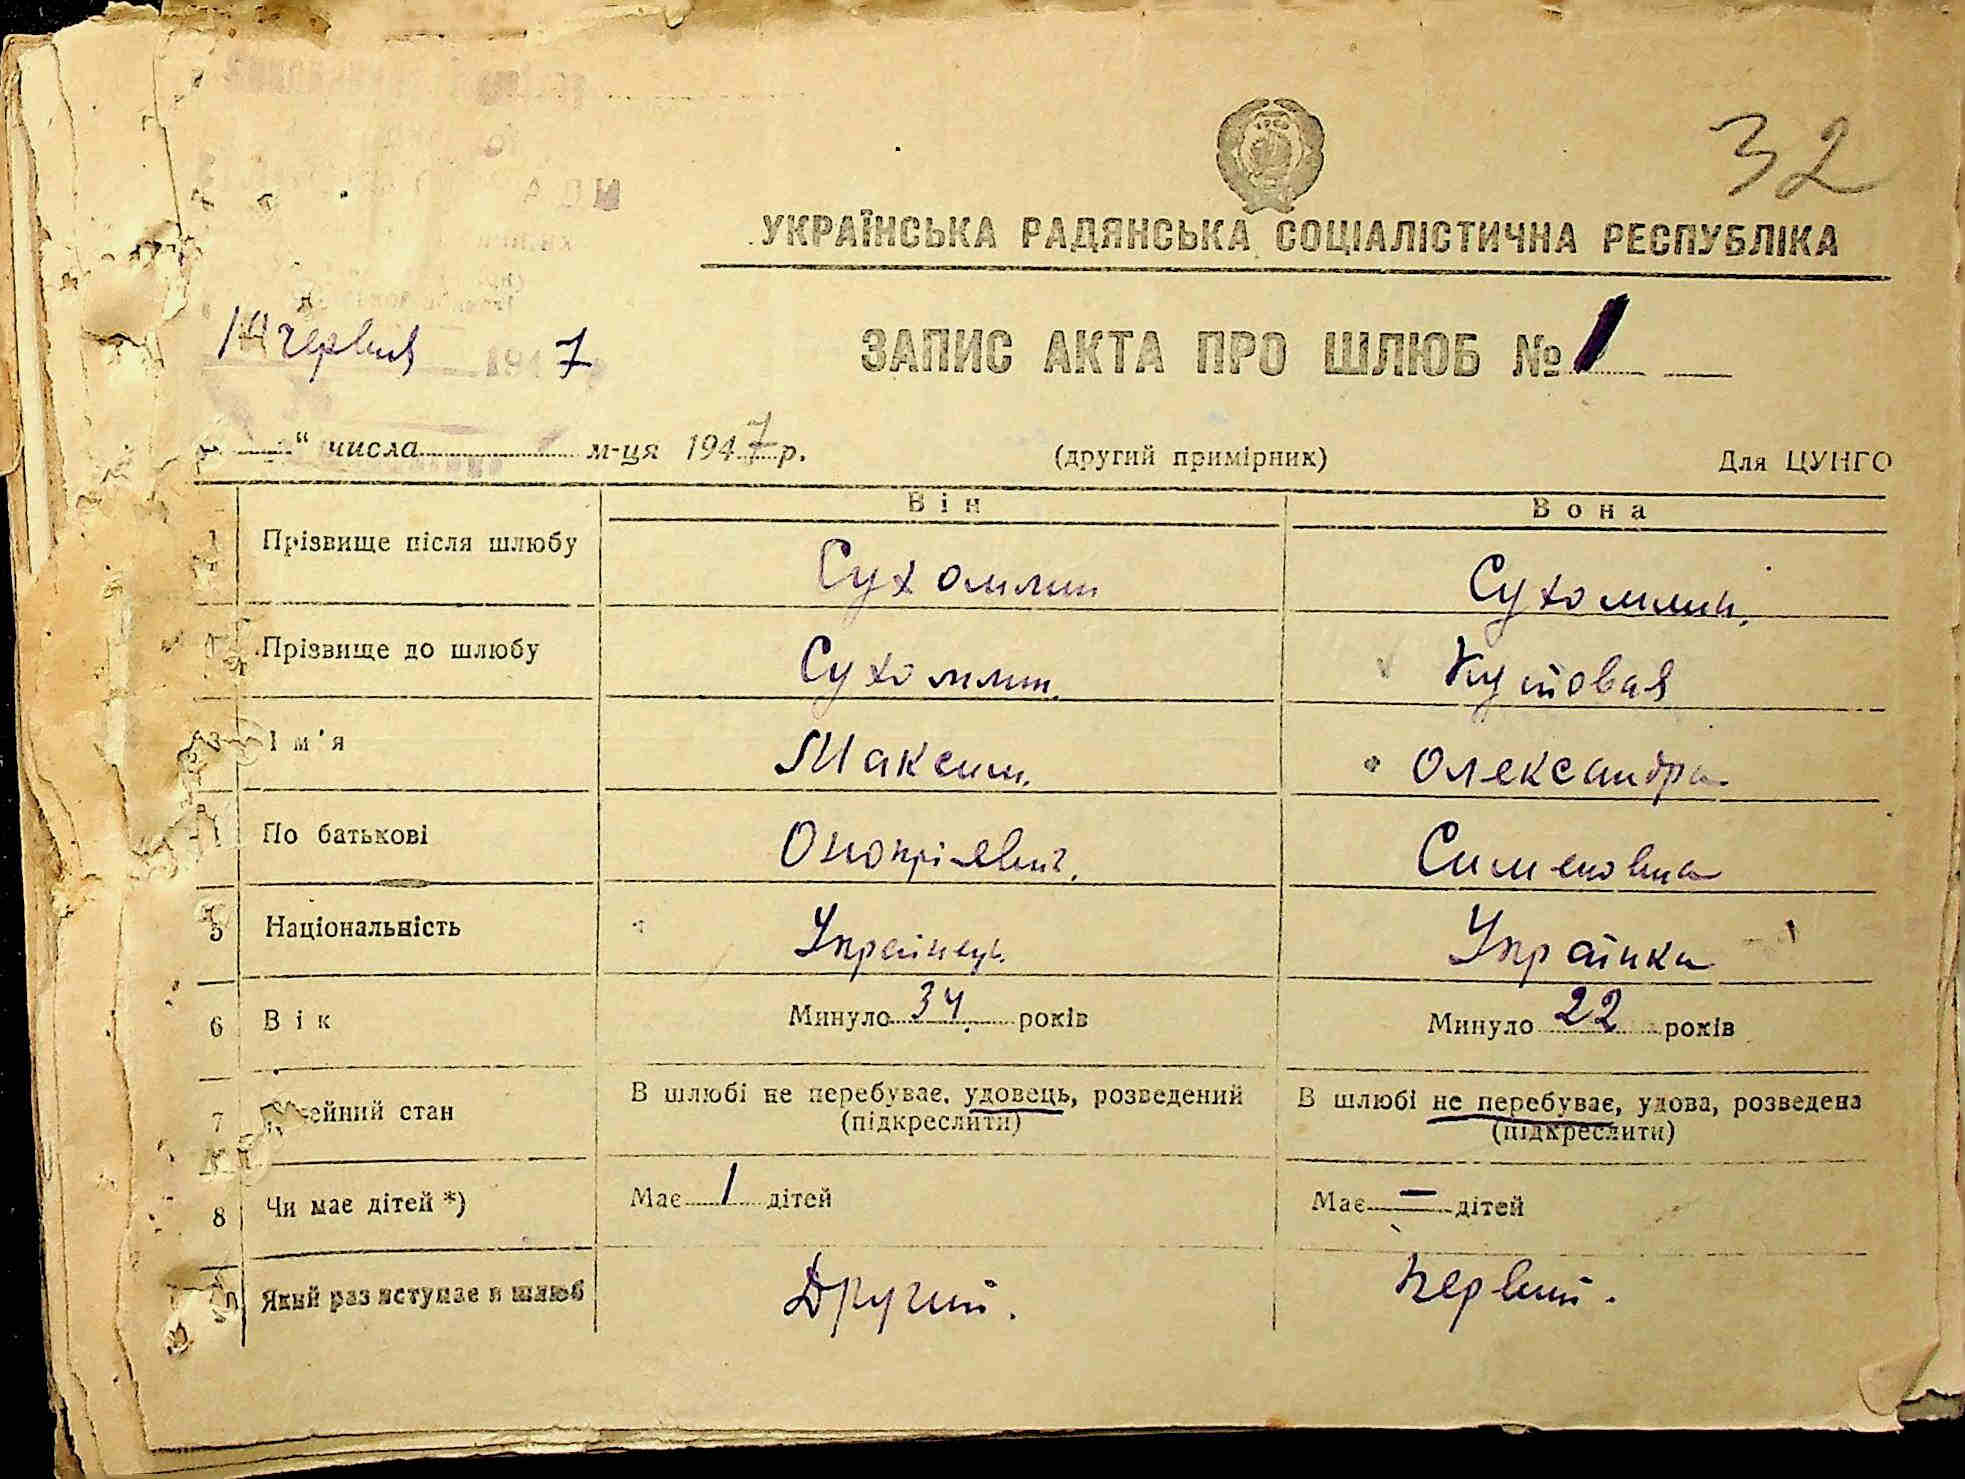 32
УКРАЇНСЬКА РАДЯНСЬКА СОЦІАЛІСТИЧНА РЕСПУБЛІКА
14 червня 1947
ЗАПИС АКТА ПРО ШЛЮБ № 1
" числа м-ця 1947 р.
(другий примірник)
Для ЦУНГО
Він Вона
1 Прізвище після шлюбу Сухомлин Сухомлин.
Прізвище до шлюбу Сухомлин. Кутовая
3 Ім'я Максим. Олександра
По батькові Онопріевич. Сименовна
5 Національність Українець. Українка
6 Вік Минуло 34 років Минуло 22 років
7 ейний стан В шлюбі не перебуває, удовець, розведений В шлюбі не перебуває, удова, розведена
(підкреслити) (підкреслити)
8 Чи має дітей *) Має 1 дітей Має — дітей
Який раз вступає в шлюб Другий. Первий.